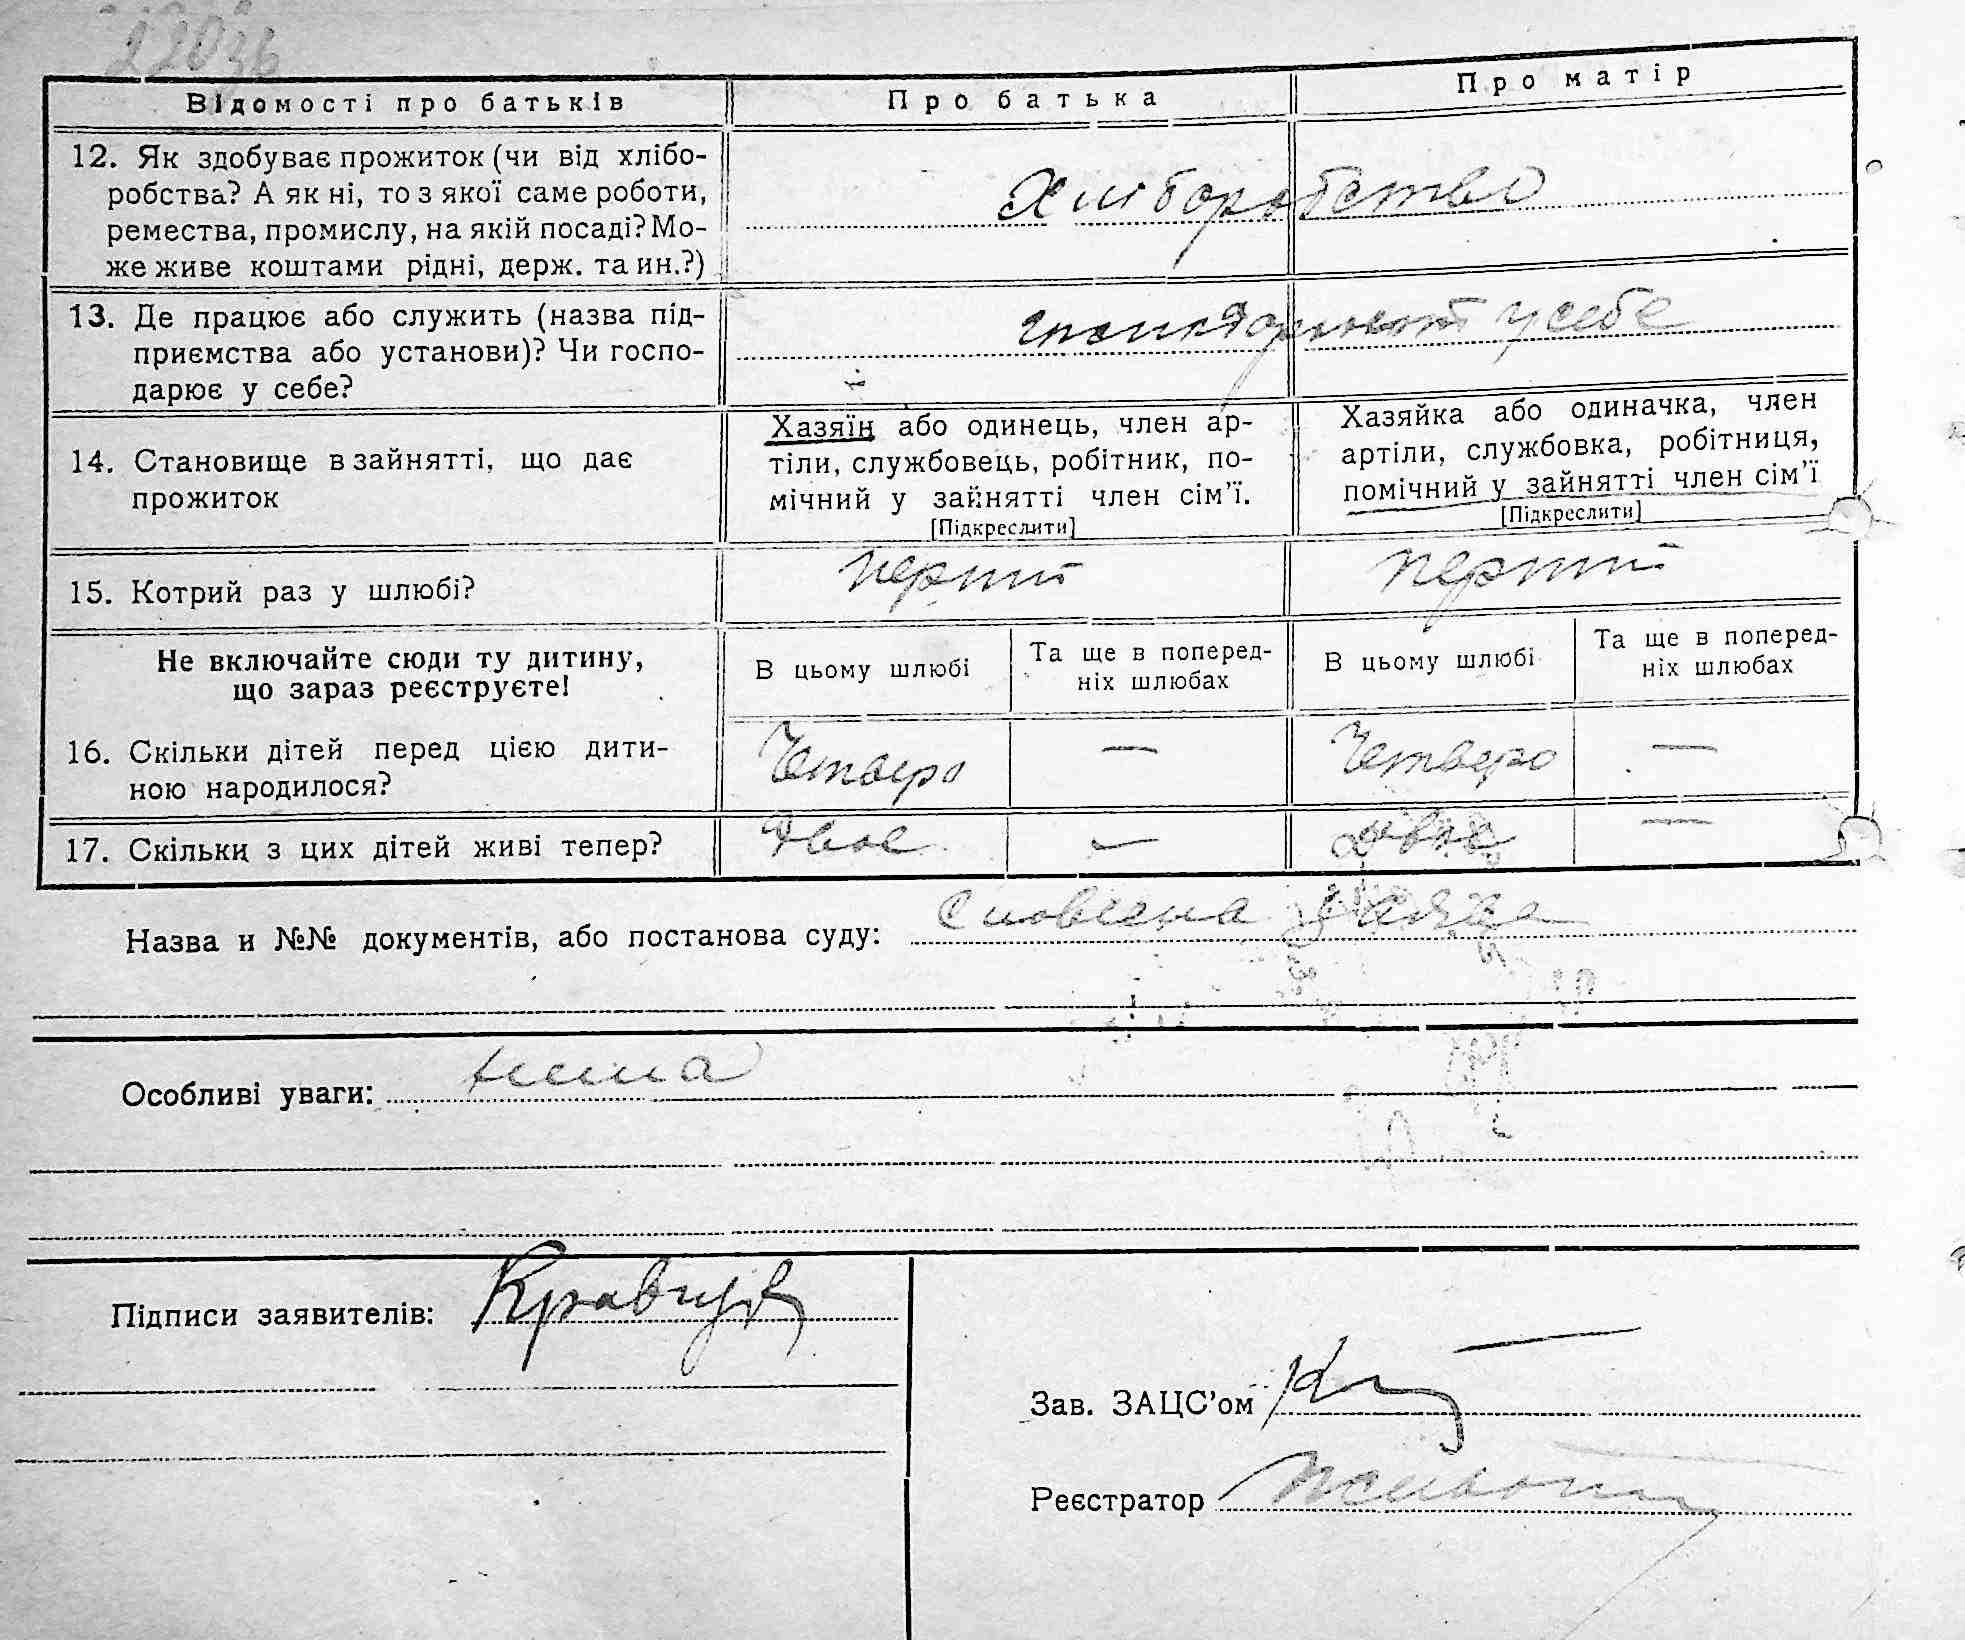 Відомості про батьків Про батька Про матір
12. Як здобуває прожиток (чи від хлібо-
робства? А як ні, то з якої саме роботи,
ремества, промислу, на якій посаді? Мо-
же живе коштами рідні, держ. та ин.?)
Хліборобство
13. Де працює або служить (назва під-
приємства або установи)? Чи госпо-
дарює у себе?
у себе
14. Становище в зайнятті, що дає
прожиток
Хазяїн або одинець, член ар-
тіли, службовець, робітник, по-
мічний у зайнятті член сім'ї.
[Підкреслити]
Хазяйка або одиначка, член
артіли, службовка, робітниця,
помічний у зайнятті член сім'ї
[Підкреслити]
15. Котрий раз у шлюбі? перший перший
Не включайте сюди ту дитину,
що зараз реєструєте!
В цьому шлюбі
Та ще в поперед-
ніх шлюбах
В цьому шлюбі
Та ще в поперед-
ніх шлюбах
16. Скільки дітей перед цією дити-
ною народилося?
Четверо — Четверо —
17. Скільки з цих дітей живі тепер? Двоє — Двоє —
Назва и №№ документів, або постанова суду:
Особливі уваги: нима
Підписи заявителів:
Зав. ЗАЦС'ом
Реєстратор